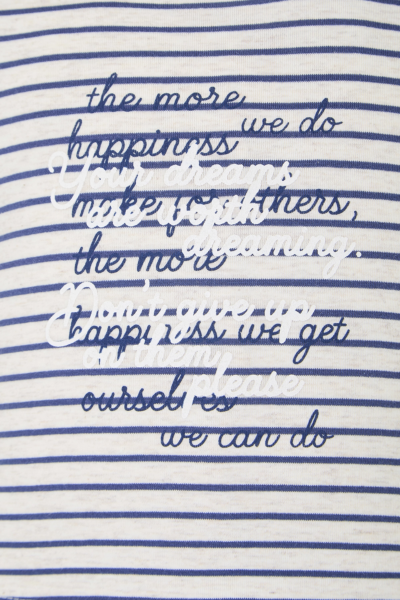 the more
we do
happiness
Your dreams
make for others,
are worth
dreaming.
the more
Don't give up
happiness we get
on them
please
ourselves
we can do